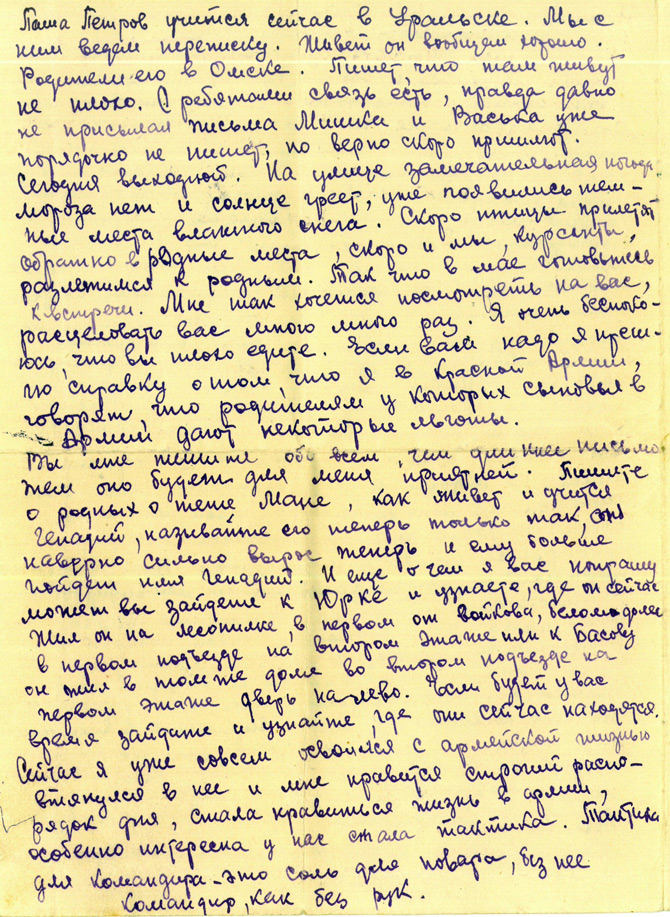 Паша Петров учится сейчас в Уральске. Мы с
ним ведем переписку. Живет он вообщем хорошо.
Родители его в Омске. Пишет, что там живут
не плохо. С ребятами связь есть, правда давно
не присылал письма Мишка и Васька уже
порядочно не пишет, но верно скоро пришлют.
Сегодня выходной. На улице замечательная погода.
мороза нет и солнце греет, уже появились тем-
ные места влажного снега. Скоро птицы прилетят
обратно в родные места, скоро и мы, курсанты,
разлетимся к родным. Так что в мае готовьтесь
к встречи. Мне так хочется посмотреть на вас,
расцеловать вас много много раз. Я очень беспоко-
юсь, что вы плохо едите. Если вам надо я приш-
лю справку о том, что я в Красной Армии,
говорят, что родителям у которых сыновья в
Армии дают некоторые льготы.
Вы мне пишите обо всем, чем длиннее письмо
тем оно будет для меня приятней. Пишите
о родных о тете Мане, как живет и учится
Генадий, называйте его теперь только так, он
наверно сильно вырос теперь и ему больше
пойдет имя Генадий. И еще о чем я вас попрошу
может вы зайдете к Юрке и узнаете, где он сейчас
Жил он на лесопилке, в первом от Войкова, белом доме
в первом подъезде на втором этаже или к Басову
он жил в том же доме во втором подъезде на
первом этаже дверь на-лево. Если будет у вас
время зайдите и узнайте, где они сейчас находятся.
Сейчас я уже совсем освоился с армейской жизнью
втянулся в нее и мне нравится строгий распо-
рядок дня, стала нравиться жизнь в армии,
особенно интересна у нас стала тактика. Тактика
для командира - это соль для повара, без нее
командир, как без рук.